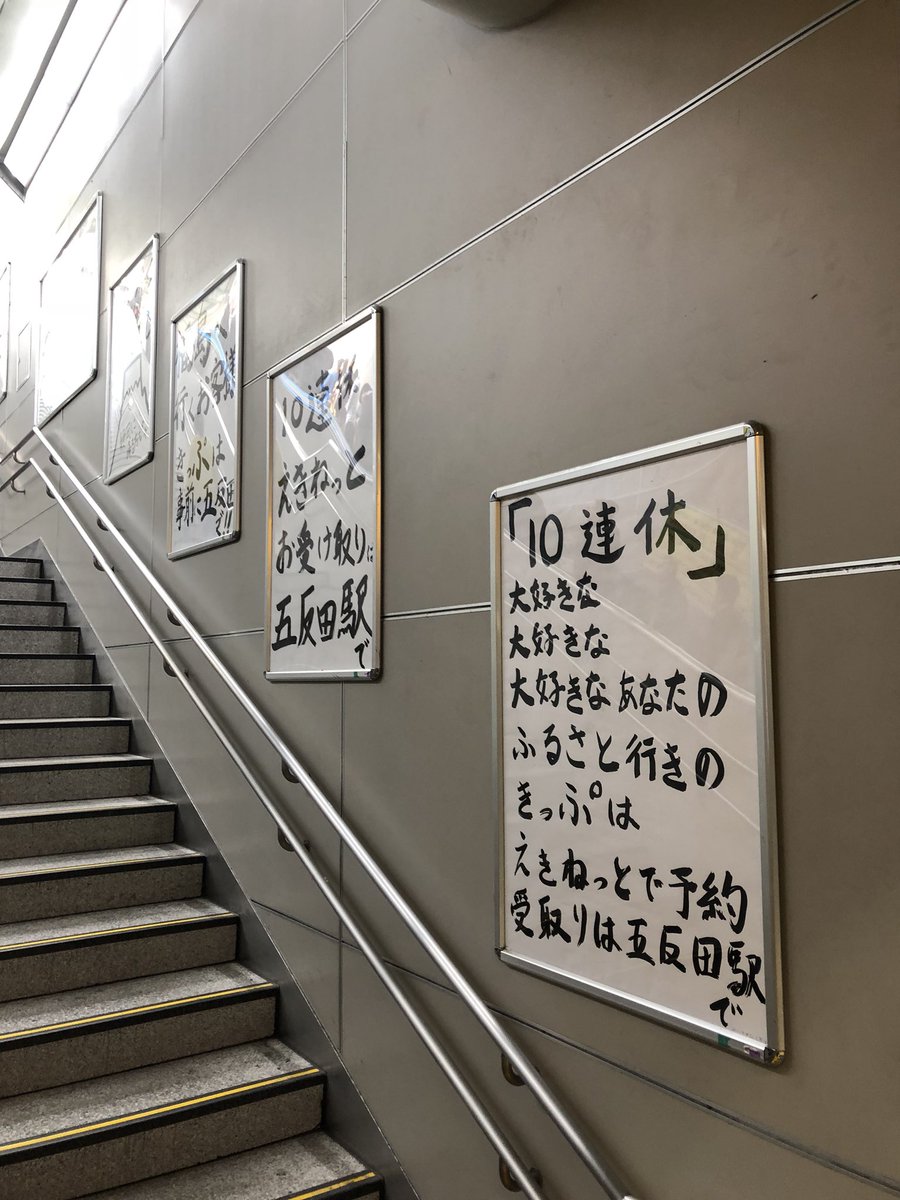 「10連休」
大好きな
大好きな
大好きなあなたの
ふるさと行きの
きっぷは
えきねっとで予約
受取りは五反田駅
で
10連休
えきねっと
お受け取りは
五反田駅
で
行くお客様
きっぷは
事前に五反田
で!!